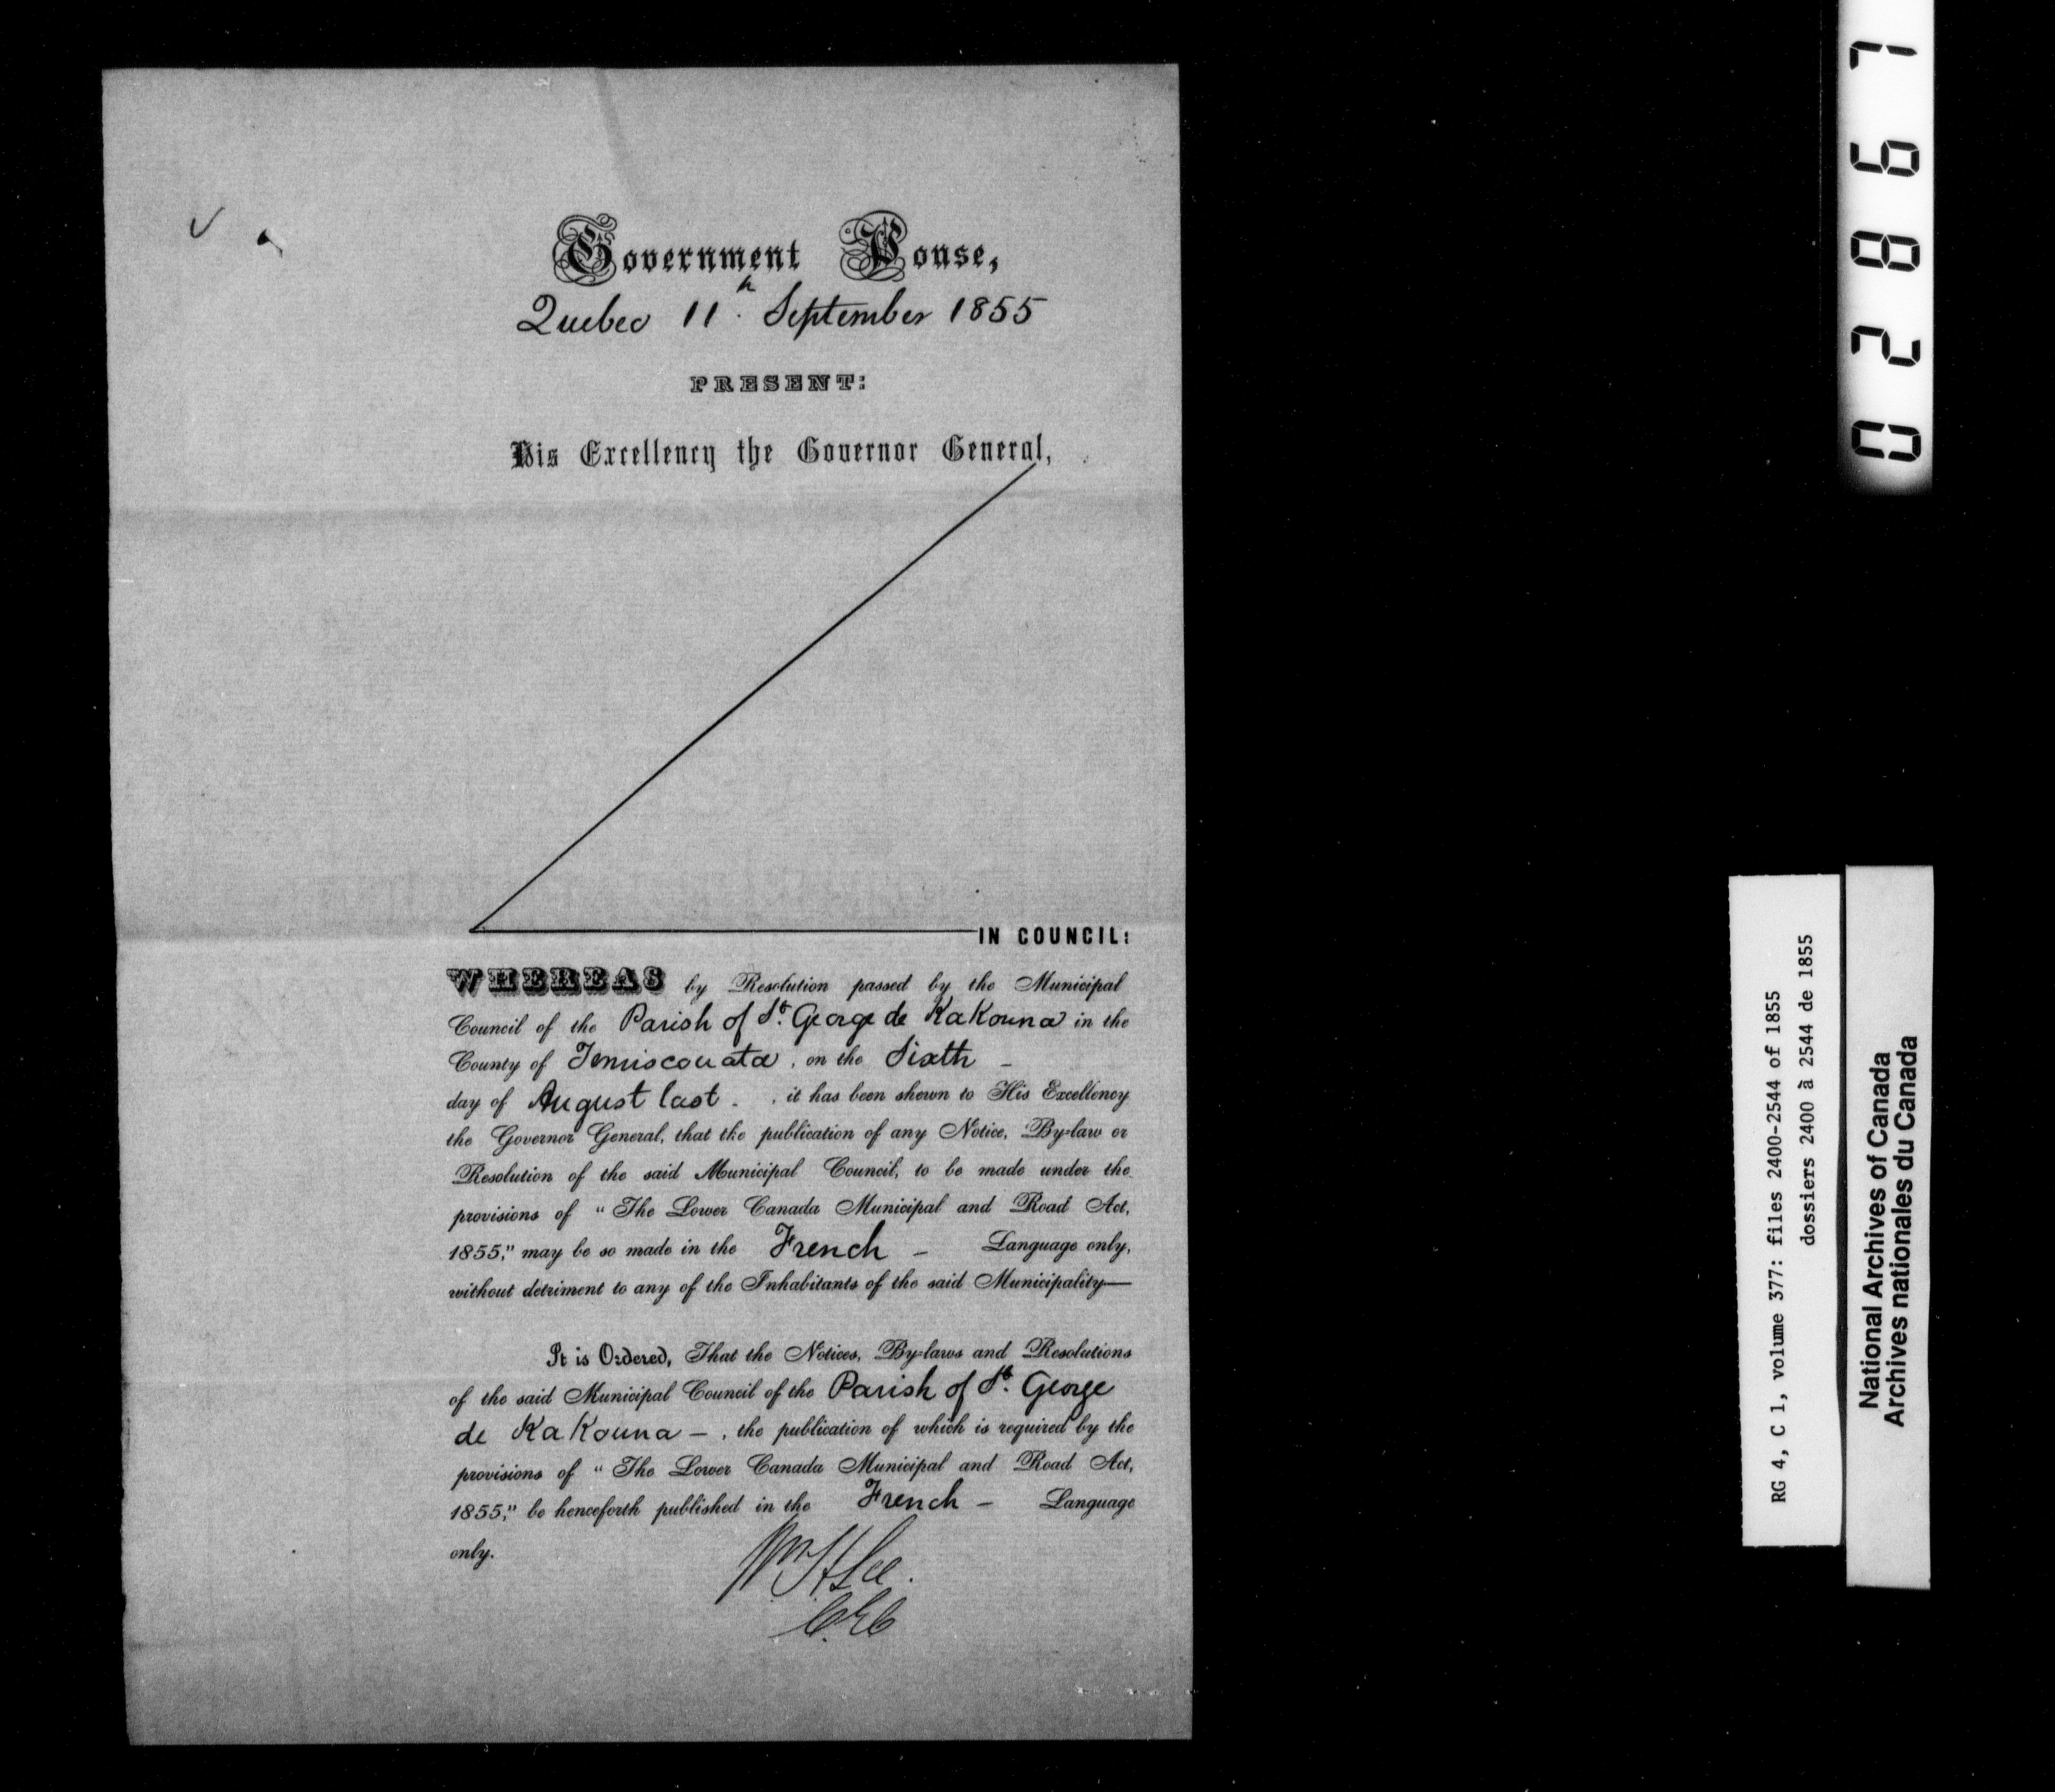 Government House,
Quebec 11th September 1855
PRESENT:
His Excellency the Governor General,
IN COUNCIL:
WHEREAS by Resolution passed by the Municipal
Council of the Parish of St. George de KaKouna in the
County of Temiscouata, on the Sixth –
day of August last. , it has been shewn to His Excellency
the Governor General, that the publication of any Notice, By-law or
Resolution of the said Municipal Council, to be made under the
provisions of "The Lower Canada Municipal and Road Act,
1855," may be so made in the French – Language only,
without detriment to any of the Inhabitants of the said Municipality—
It is Ordered, That the Notices, By-laws and Resolutions
of the said Municipal Council of the Parish of St. George
de KaKouna – , the publication of which is required by the
provisions of "The Lower Canada Municipal and Road Act,
1855," be henceforth published in the French – Language
only.
Wm H Lee.
C.E.C
02867
RG 4, C 1, volume 377: files 2400-2544 of 1855
dossiers 2400 à 2544 de 1855
National Archives of Canada
Archives nationales du Canada